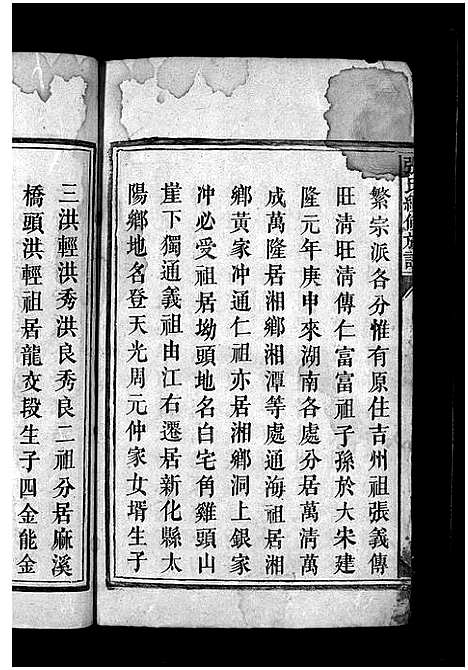 張氏續修族譜
繁宗派各分惟有原住吉州祖張義傳
旺清旺清傳仁富富祖子孫於大宋建
隆元年庚申來湖南各處分居萬清萬
成萬隆居湘鄉湘潭等處通海祖居湘
鄉黃家冲通仁祖亦居湘鄉洞上銀家
冲必受祖居坳頭地名白宅角雞頭山
崖下獨通義祖由江右遷居新化縣太
陽鄉地名登天光周元仲家女壻生子
三洪輕洪秀洪良秀良二祖分居麻溪
橋頭洪輕祖居龍㳇段生子四金能金